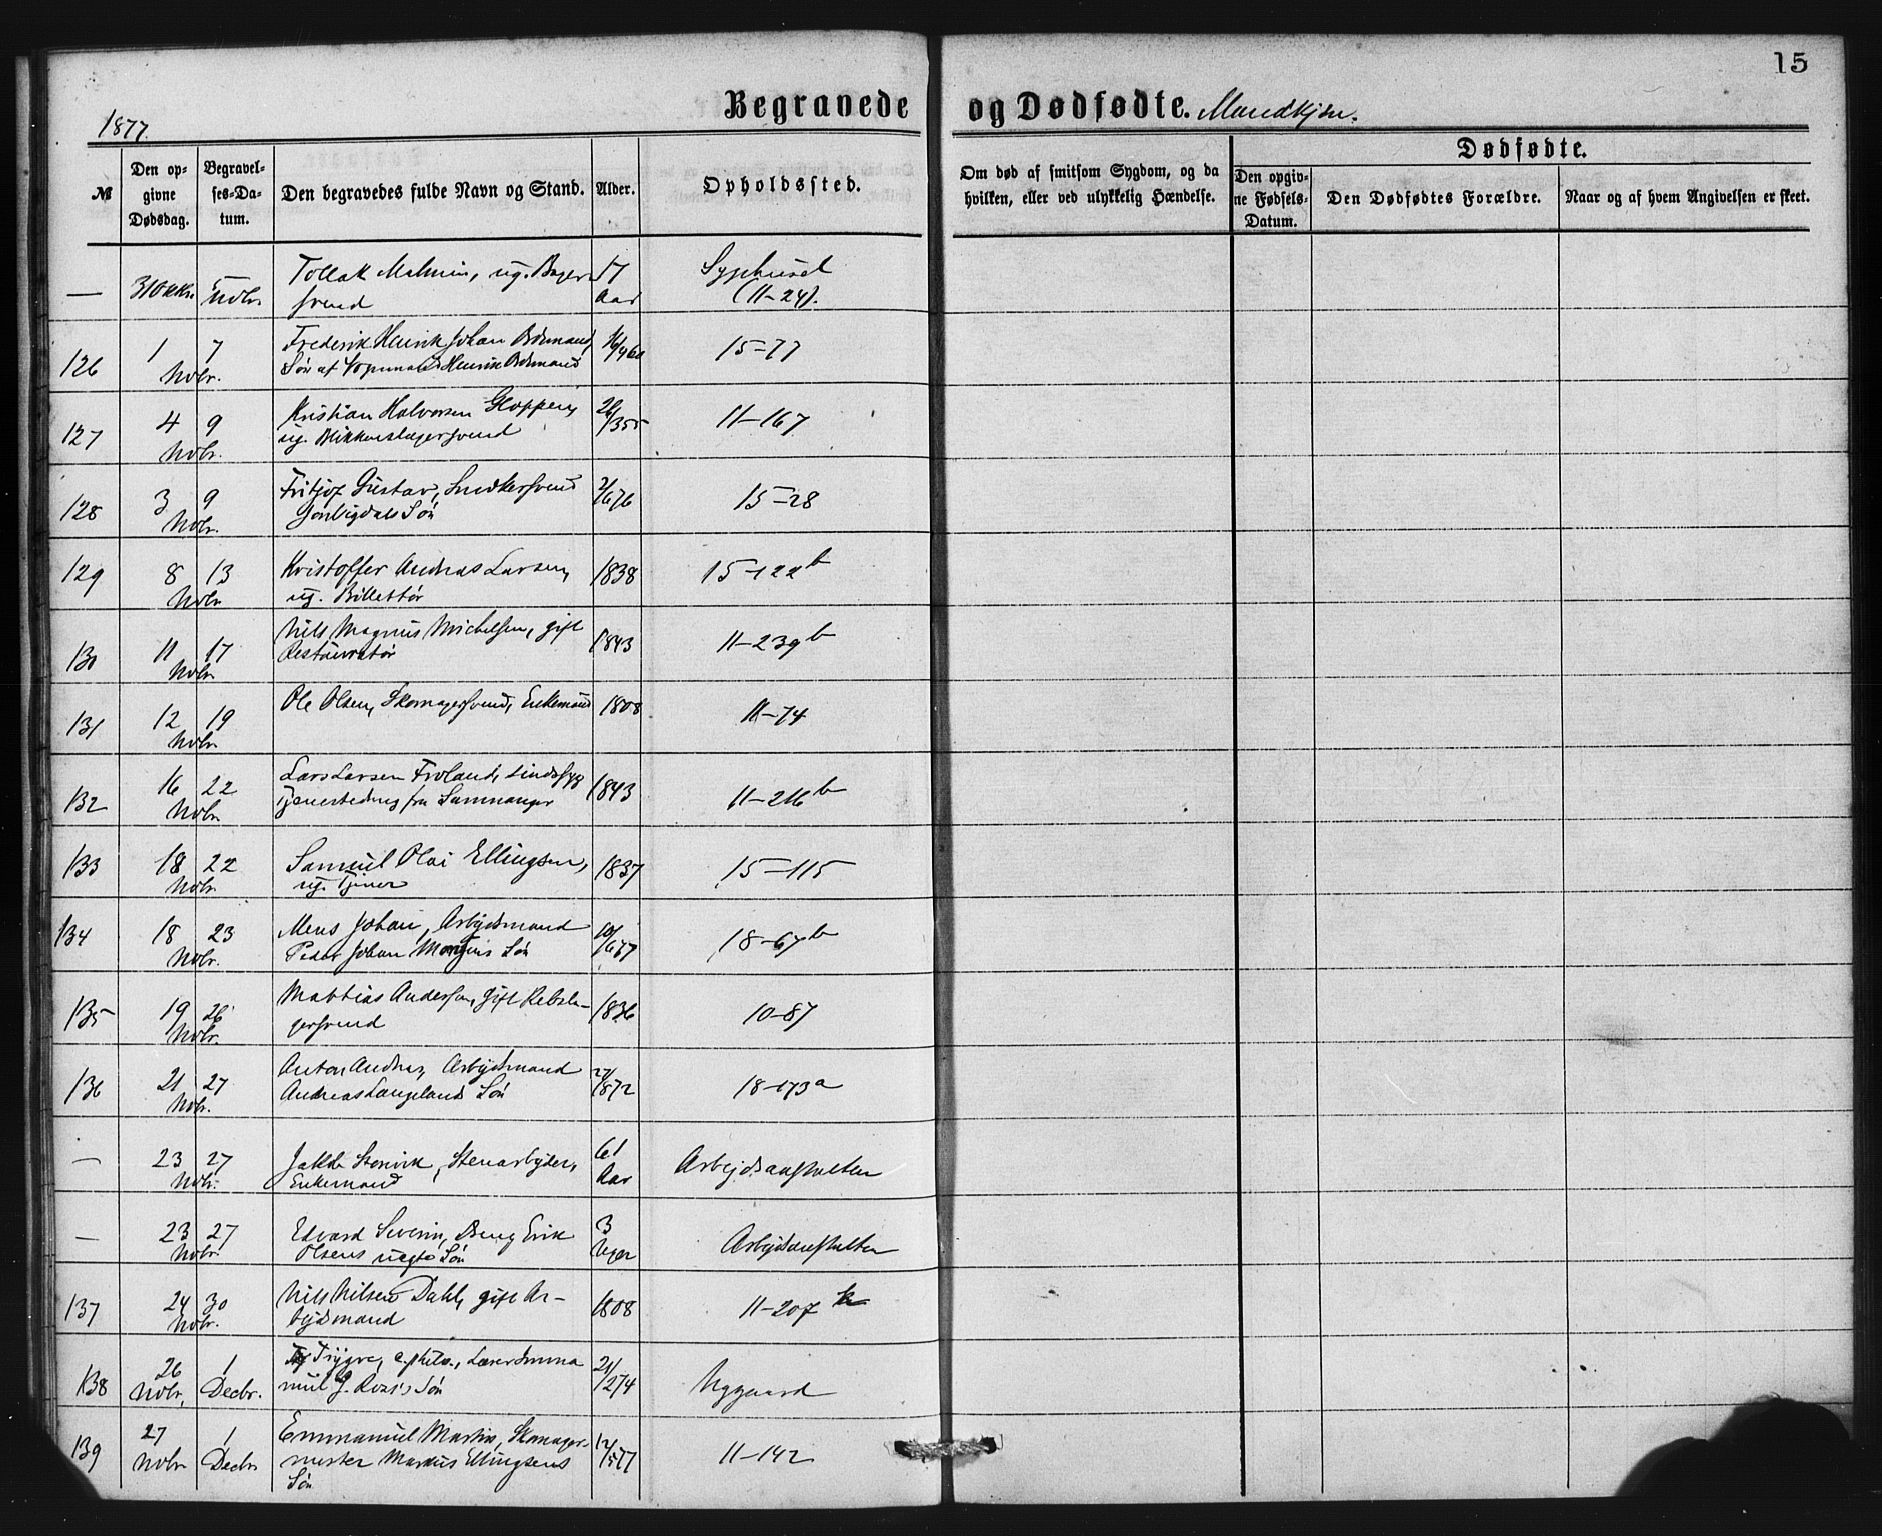 15
Begravede og Dødfødte. Mandkjøn.
1877.
№
Den opgivne Dødsdag.
Begravelses-Datum.
Den begravedes fulde Navn og Stand.
Alder.
Opholdssted.
Om død af smitsom Sygdom, og da hvilken, eller ved ulykkelig Hændelse.
Dødfødte.
Den opgivne Fødsels-Datum.
Den Dødfødtes Forældre.
Naar og af hvem Angivelsen er skeet.
— 31 Oktbr. 5 Novbr. Tollak Malmin, ug. Bager- 17 Sygehuset
svend Aar (11-24).
126 1 7 Frederik Henrik Johan
Novbr. Søn af Henrik 15-77
127 4 9 Kristian Halvorsen 26/355 11-167
Novbr. ug. Blikkenslagersvend
128 3 9 Fritjof Gustav, Snedkersvend 2/676 15-28
Novbr. Søn
129 8 13 Kristoffer Andreas Larsen, 1838 15-122b
Novbr ug. Billettør
130 11 17 Nils Magnus Michelsen, gift 1843 11-239b
Novbr Restauratør
131 12 19 Ole Olsen, Skomagersvend, Enkemand 1808 11-74
Novbr
132 16 22 Lars Larsen Froland, sindssyg 1843 11-216b
Novbr. fra Samnanger
133 18 22 Samuel Olai Ellingsen, 1837 15-115
Novbr. ug. Tjener
134 18 23 Mens Johan, Arbejdsmand 10/677 18-67b
Novbr. Peder Johan Søn
135 19 26 Mathias Andersen, gift Rebsla- 1836 10-87
Novbr. gersvend
136 21 27 Anton Andreas, Arbejdsmand 27/872 18-173a
Novbr. Andreas Langelands Søn
— 23 27 Jakob Stenvik, Stenarbejder, 61 Arbejdsanstalten
Novbr. Enkemand Aar
— 23 27 Edvard Severin, Erik 3 Arbejdsanstalten
Novbr. Olsens uegte Søn Uger
137 24 30 Nils Nilsen Dahl, gift Ar- 1808 11-207
Novbr. bejdsmand
138 26 1 Trygve, Lærer Imma 21/274 Nygaard
Novbr. Decbr. nuel J. Søn
139 27 1 Emmanuel Martin, Skomager- 12/577 11-142
Novbr Decbr mester Markus Ellingsens
Søn